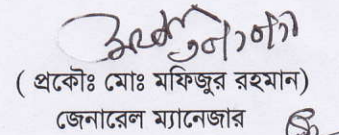 ( প্রকৌঃ মোঃ মফিজুর রহমান)
জেনারেল ম্যানেজার